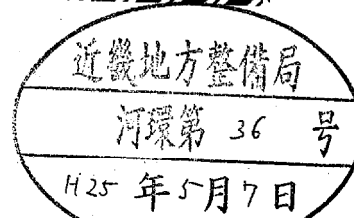 近畿地方整備局
河環第 36 号
H25 年 5月 7 日